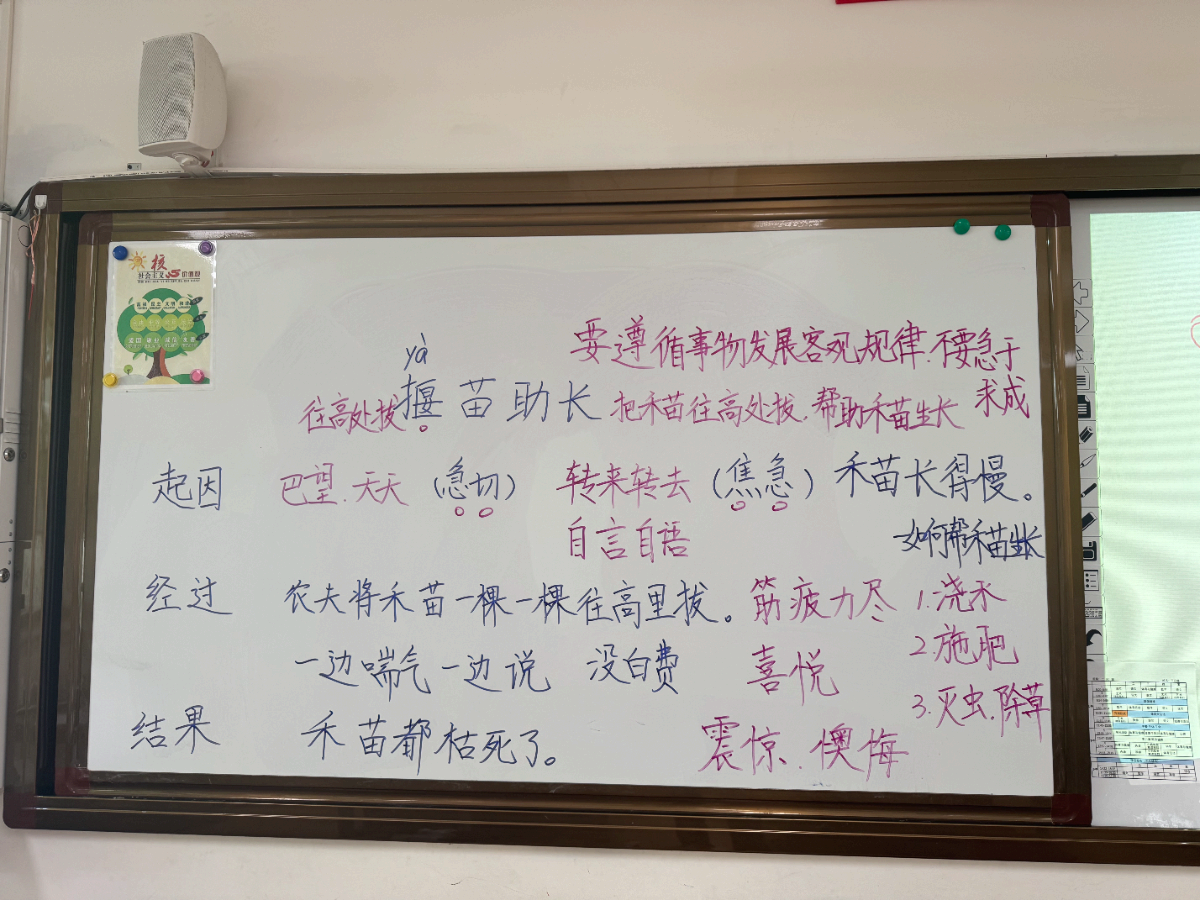 核
社会主义 价值观
yà
要遵循事物发展客观规律.不要急于
求成
往高处拔 揠苗助长 把禾苗往高处拔.帮助禾苗生长
起因 巴望.天天 (急切) 转来转去 (焦急) 禾苗长得慢。
自言自语 如何帮禾苗生长
经过 农夫将禾苗一棵一棵往高里拔。 筋疲力尽 1.浇水
一边喘气一边说 没白费 喜悦 2.施肥
3.灭虫.除草
结果 禾苗都枯死了。 震惊.懊悔